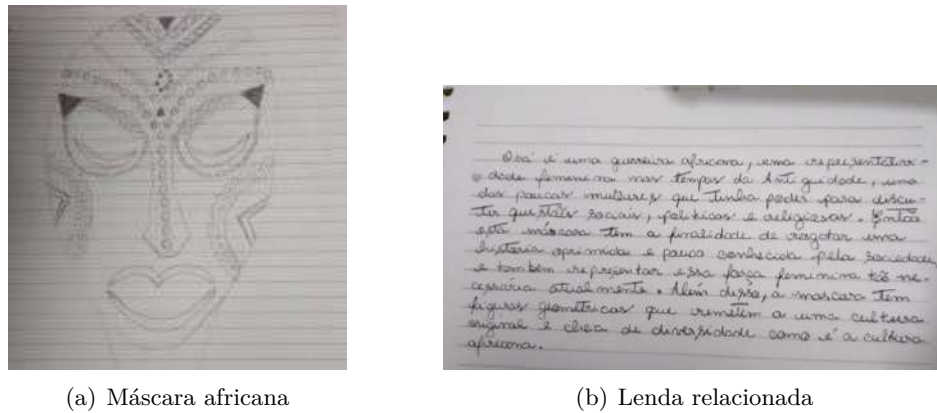 Obá é uma guerreira africana, uma representativi-
dade feminina nos tempos da Antiguidade, uma
das poucas mulheres que tinha poder para discu-
tir questões sociais, políticas e religiosas. Então
esta máscara tem a finalidade de resgatar uma
história oprimida e pouco conhecida pela sociedade,
e também representar essa força feminina tão ne-
cessária atualmente. Além disso, a mascara tem
figuras geométricas que remetem a uma cultura
original e cheia de diversidade como é a cultura
africana.
(a) Máscara africana
(b) Lenda relacionada